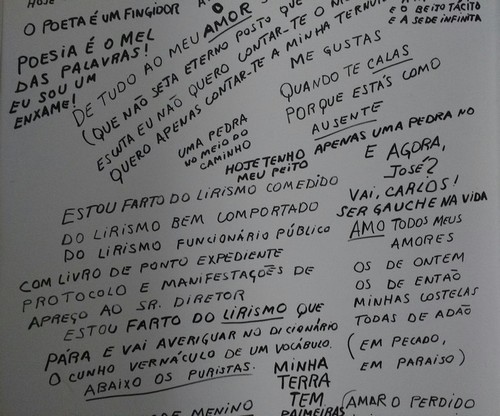 HOJE
O POETA É UM FINGIDOR
O
POESIA É O MEL
DAS PALAVRAS!
EU SOU UM
ENXAME!
DE TUDO AO MEU AMOR
(QUE NÃO SEJA ETERNO POSTO QUE
ESCUTA EU NÃO QUERO CONTAR-TE O
QUERO APENAS CONTAR-TE A MINHA TERNURA
E O BEIJO TÁCITO
E A SEDE INFINITA
ME GUSTAS
QUANDO TE CALAS
PORQUE ESTÁS COMO
AUSENTE
UMA PEDRA
NO MEIO DO
CAMINHO
HOJE TENHO APENAS UMA PEDRA NO
MEU PEITO
E AGORA,
JOSÉ?
VAI, CARLOS!
SER GAUCHE NA VIDA
ESTOU FARTO DO LIRISMO COMEDIDO
DO LIRISMO BEM COMPORTADO
DO LIRISMO FUNCIONÁRIO PÚBLICO
COM LIVRO DE PONTO EXPEDIENTE
PROTOCOLO E MANIFESTAÇÕES DE
APREÇO AO SR. DIRETOR
ESTOU FARTO DO LIRISMO QUE
PÁRA E VAI AVERIGUAR NO DICIONÁRIO
O CUNHO VERNÁCULO DE UM VOCÁBULO.
ABAIXO OS PURISTAS.
AMO TODOS MEUS
AMORES
OS DE ONTEM
OS DE ENTÃO
MINHAS COSTELAS
TODAS DE ADÃO
(EM PECADO,
EM PARAISO)
MINHA
TERRA
TEM
PALMEIRAS
MENINO
(AMAR O PERDIDO